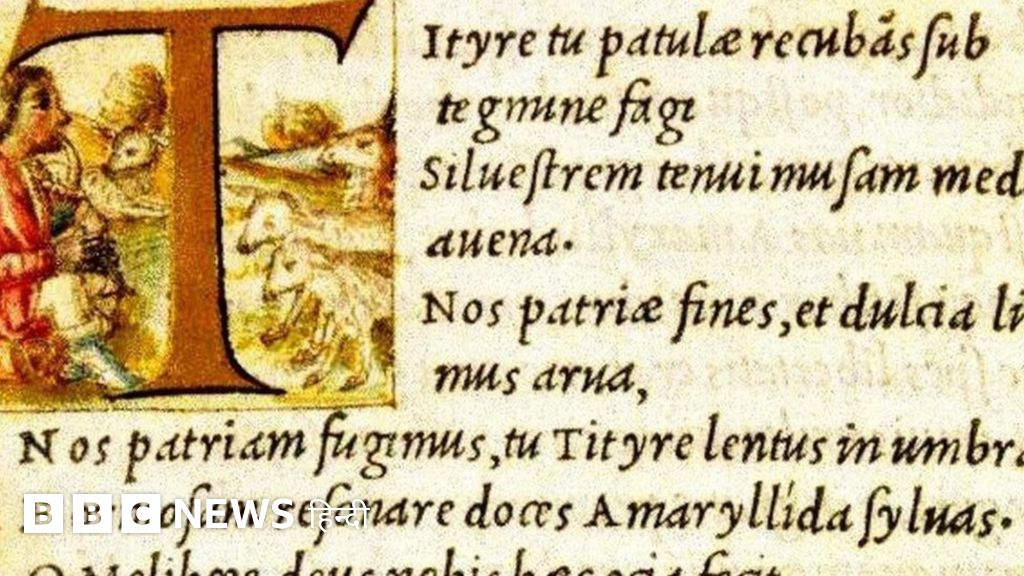 T
Ityre tu patulæ recubãs ſub
tegmine fagi
Silueſtrem tenui muſam med
auena.
Nos patriæ fines, et dulcia li
mus arua,
Nos patriam fugimus, tu Tityre lentus in umbra
reſonare doces Amaryllida ſyluas.
BBC NEWS हिन्दी
O Melibœe, deus nobis hæc ocia fecit